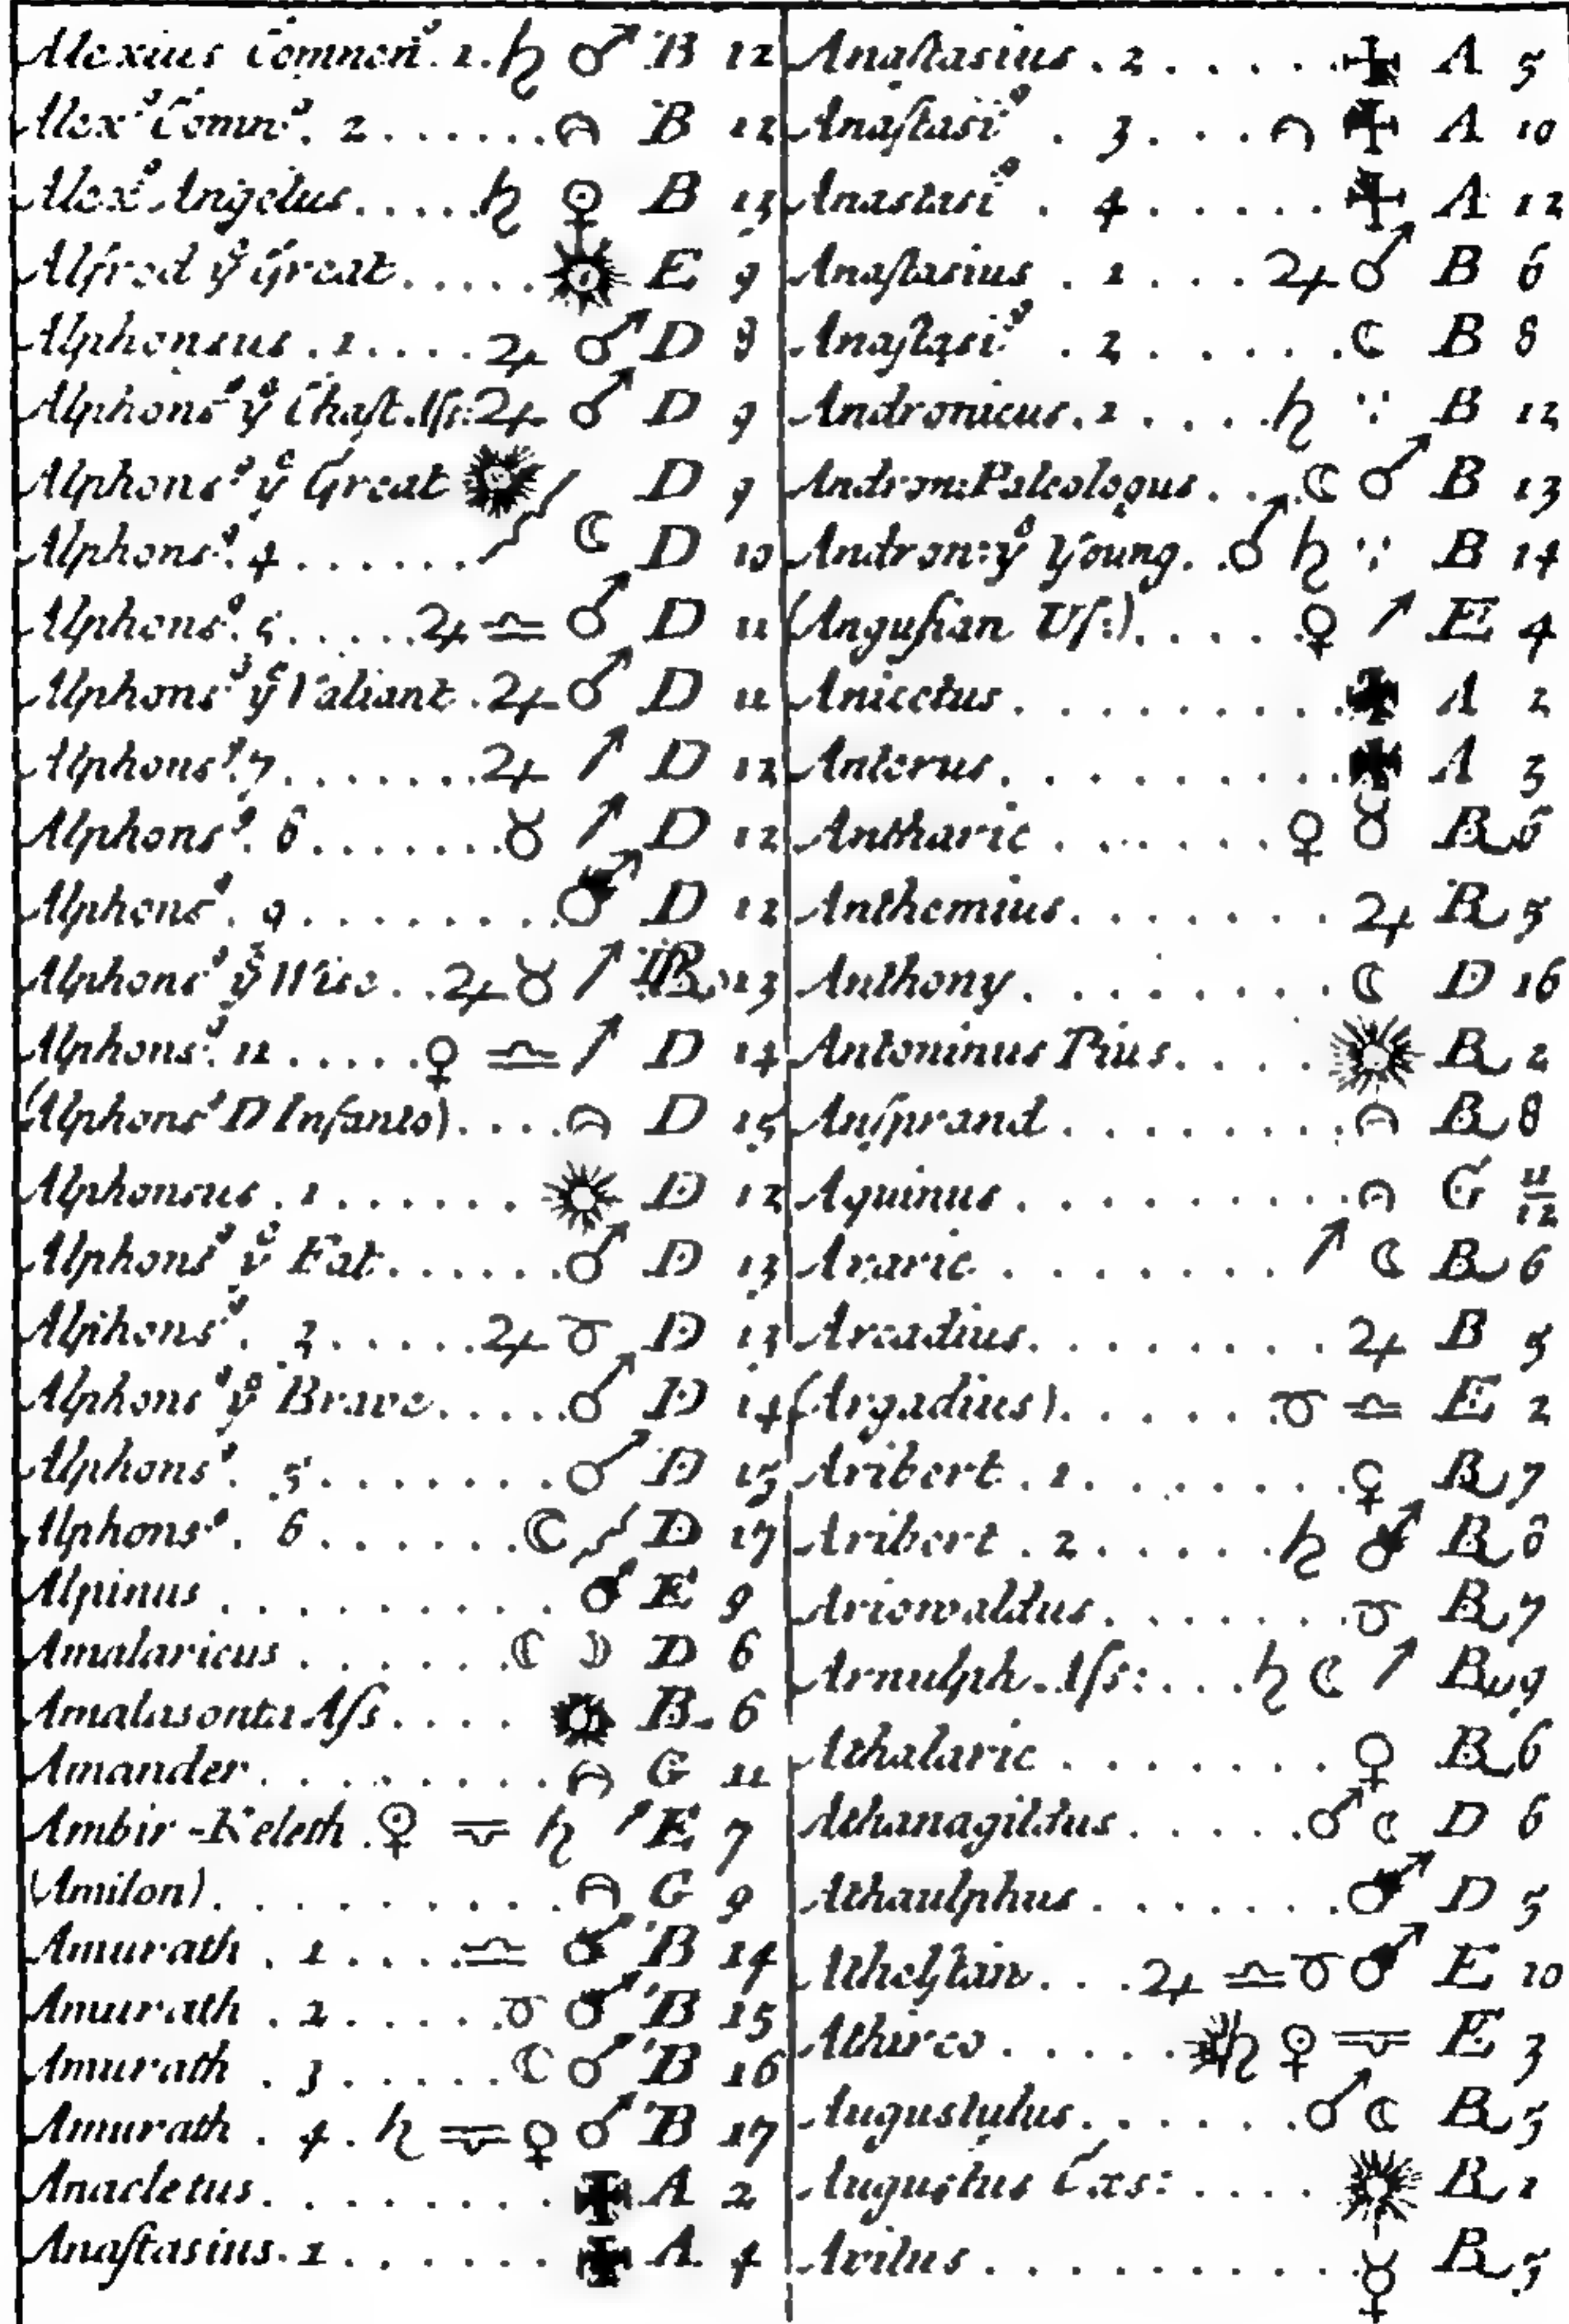 Alexius Comnen⁹. 1. ♄ ♂ B 12
Alex⁹ Comn⁹. 2 ...... B 12
Alex⁹ Angelus ..... ♄ B 13
Alfred yᵉ Great ..... E 9
Alphonsus . 1 .... ♃ ♂ D 8
Alphons⁹ yᵉ Chaſt. Aſs: ♃ ♂ D 9
Alphons⁹ yᵉ Great D 9
Alphons⁹. 4 ...... ☾ D 10
Alphons⁹. 5 ..... ♃ ♎ ♂ D 11
Alphons⁹ yᵉ Valiant . ♃ ♂ D 11
Alphons⁹. 7 ....... ♃ ↗ D 12
Alphons⁹. 8 ....... ♉ ↗ D 12
Alphons⁹. 9 ........ ♂ D 12
Alphons⁹ yᵉ Wise . . ♃ ♉ ↗ 13
Alphons⁹. 11 ..... ♀ ♎ ↗ D 14
(Alphons⁹ D Infanto) .... D 15
Alphonsus . 1 ...... D 12
Alphons⁹ yᵉ Fat ...... ♂ D 13
Alphons⁹. 3 ..... ♃ D 13
Alphons⁹ yᵉ Brave ..... ♂ D 14
Alphons⁹. 5 ........ ♂ D 15
Alphons⁹. 6 ...... ☾ D 17
Alpinus .......... ♂ E 9
Amalaricus ...... ☾ ☽ D 6
Amalasonta Aſs .... B 6
Amander ......... G 11
Ambir-Keleth . ♄ ↗ E 7
(Amilon) ......... G 9
Amurath . 1 .... ♎ ♂ B 14
Amurath . 2 ..... ♂ B 15
Amurath . 3 ..... ☾ ♂ B 16
Amurath . 4 . ♄ ♀ ♂ B 17
Anacletus ........ ✠ A 2
Anaſtasius . 1 ...... ✠ A 4
Anaſtasius . 2 ..... ✠ A 5
Anaſtasi⁹ . 3 ... ✠ A 10
Anastasi⁹ . 4 ..... ✠ A 12
Anaſtasius . 1 ... ♃ ♂ B 6
Anaſtasi⁹ . 2 ...... ☾ B 8
Andronicus . 1 .... ♄ ∵ B 12
Andron: Paleologus ... ☾ ♂ B 13
Andron: yᵉ Young . . ♂ ♄ ∵ B 14
(Anguſian Uſ:) .... ♀ ↗ E 4
Anicetus ......... ✠ A 2
Anterus .......... ✠ A 3
Antharic ...... ♀ ♉ B 6
Anthemius ....... ♃ B 5
Anthony ........ ☾ D 16
Antoninus Pius .... B 2
Anſprand ........ B 8
Aquinus ......... G 11/12
Araric ........ ↗ ☾ B 6
Arcadius ........ ♃ B 5
(Argadius) ..... ♎ E 2
Aribert . 1 ....... ♀ B 7
Aribert . 2 ..... ♄ ♂ B 8
Ariowaldus ...... B 7
Arnulph . Aſs: ... ♄ ☾ ↗ B 9
Athalaric ....... ♀ B 6
Athanagildus ..... ♂ ☾ D 6
Athaulphus ....... ♂ D 5
Athelſtan ... ♃ ♎ ♂ E 10
Athirco ..... ♄ E 3
Augustulus ...... ♂ ☾ B 5
Augustus Cæs: .... B 1
Avitus .......... ☿ B 5